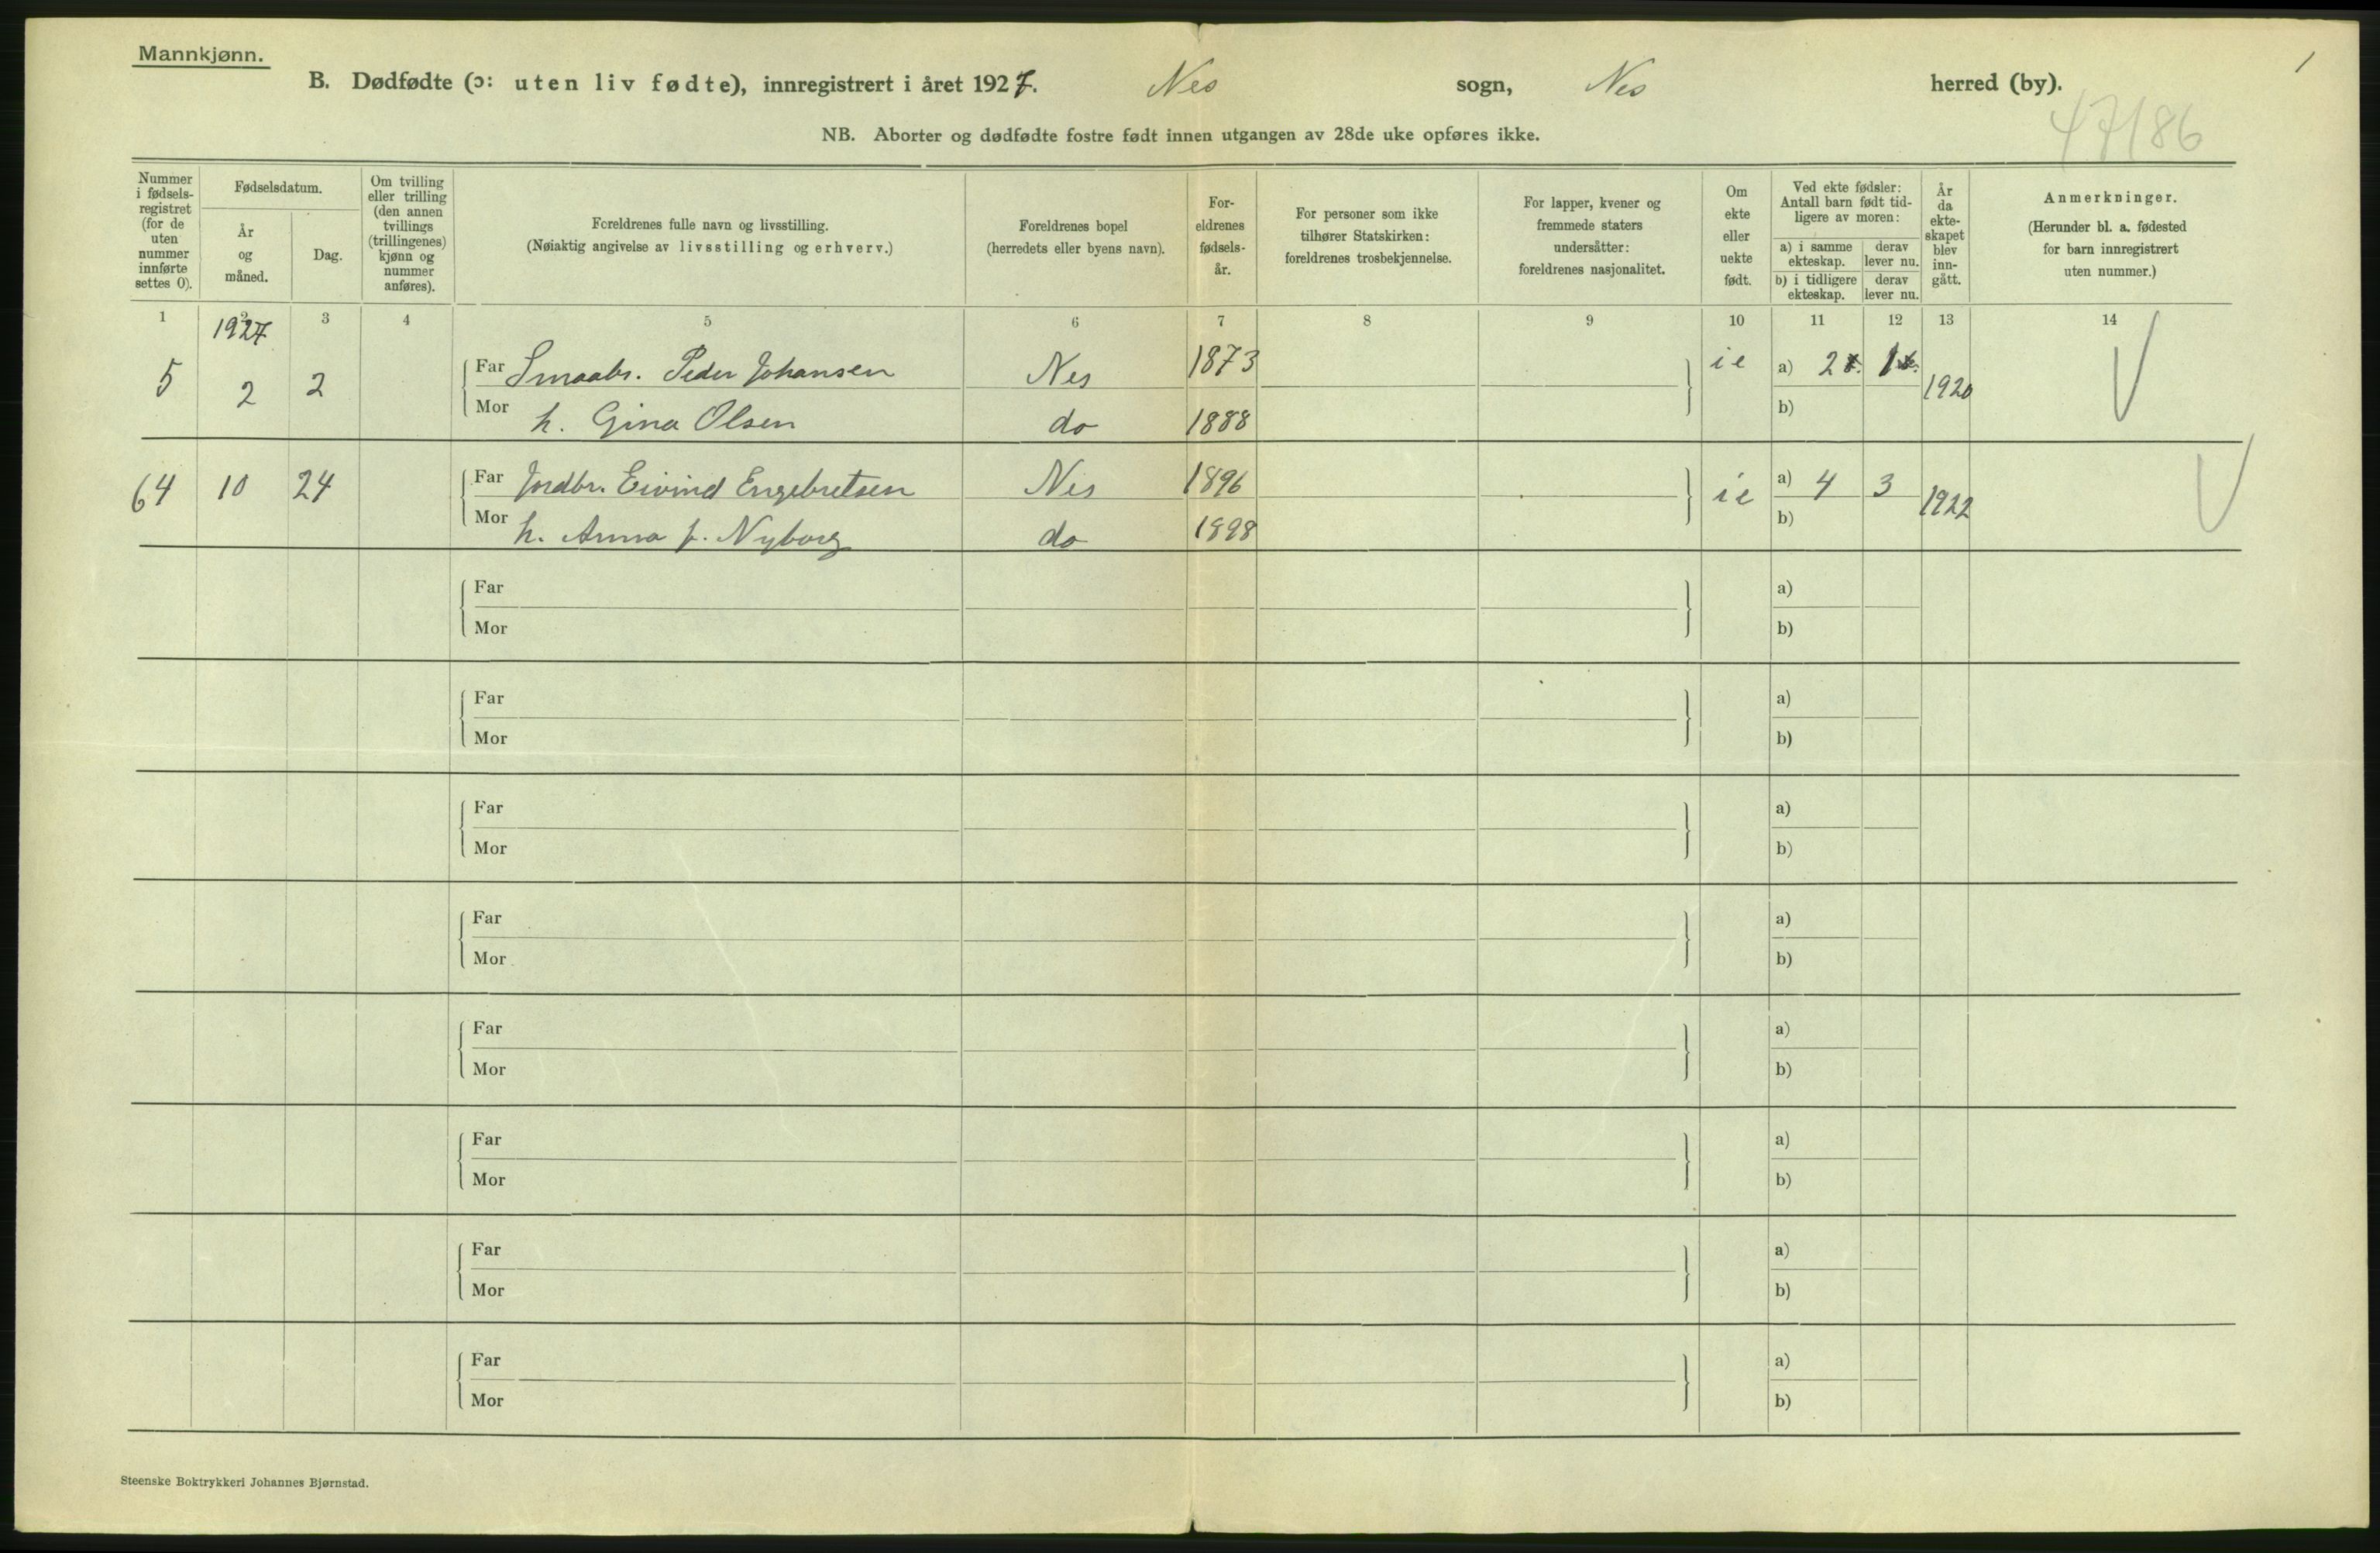 Mannkjønn.
1
B. Dødfødte (ɔ: uten liv fødte), innregistrert i året 1927. Nes sogn, Nes herred (by).
47186
NB. Aborter og dødfødte fostre født innen utgangen av 28de uke opføres ikke.
Nummer
i fødsels-
registret
(for de
uten
nummer
innførte
settes 0).
Fødselsdatum.
År
og
måned.
Dag.
Om tvilling
eller trilling
(den annen
tvillings
(trillingenes)
kjønn og
nummer
anføres).
Foreldrenes fulle navn og livsstilling.
(Nøiaktig angivelse av livsstilling og erhverv.)
Foreldrenes bopel
(herredets eller byens navn).
For-
eldrenes
fødsels-
år.
For personer som ikke
tilhører Statskirken:
foreldrenes trosbekjennelse.
For lapper, kvener og
fremmede staters
undersåtter:
foreldrenes nasjonalitet.
Om
ekte
eller
uekte
født.
Ved ekte fødsler:
Antall barn født tid-
ligere av moren:
a) i samme
ekteskap.
derav
lever nu.
b) i tidligere
ekteskap.
derav
lever nu.
År
da
ekte-
skapet
blev
inn-
gått.
Anmerkninger.
(Herunder bl. a. fødested
for barn innregistrert
uten nummer.)
1 2 3 4 5 6 7 8 9 10 11 12 13 14
1927
5 2 2 Far Smaabr. Peder Johansen Nes 1873 ie a) 2 1 1920 V
Mor h. Gina Olsen do 1888 b)
64 10 24 Far Jordbr. Eivind Engebretsen Nes 1896 ie a) 4 3 1922 V
Mor h. Anna f. Nyborg do 1898 b)
Far a)
Mor b)
Far a)
Mor b)
Far a)
Mor b)
Far a)
Mor b)
Far a)
Mor b)
Far a)
Mor b)
Far a)
Mor b)
Far a)
Mor b)
Steenske Boktrykkeri Johannes Bjørnstad.